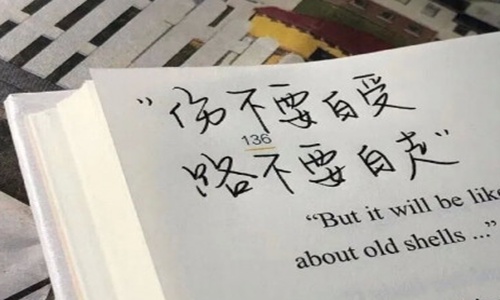 “伤不要白受
136
路不要白走”
“But it will be like
about old shells ...”